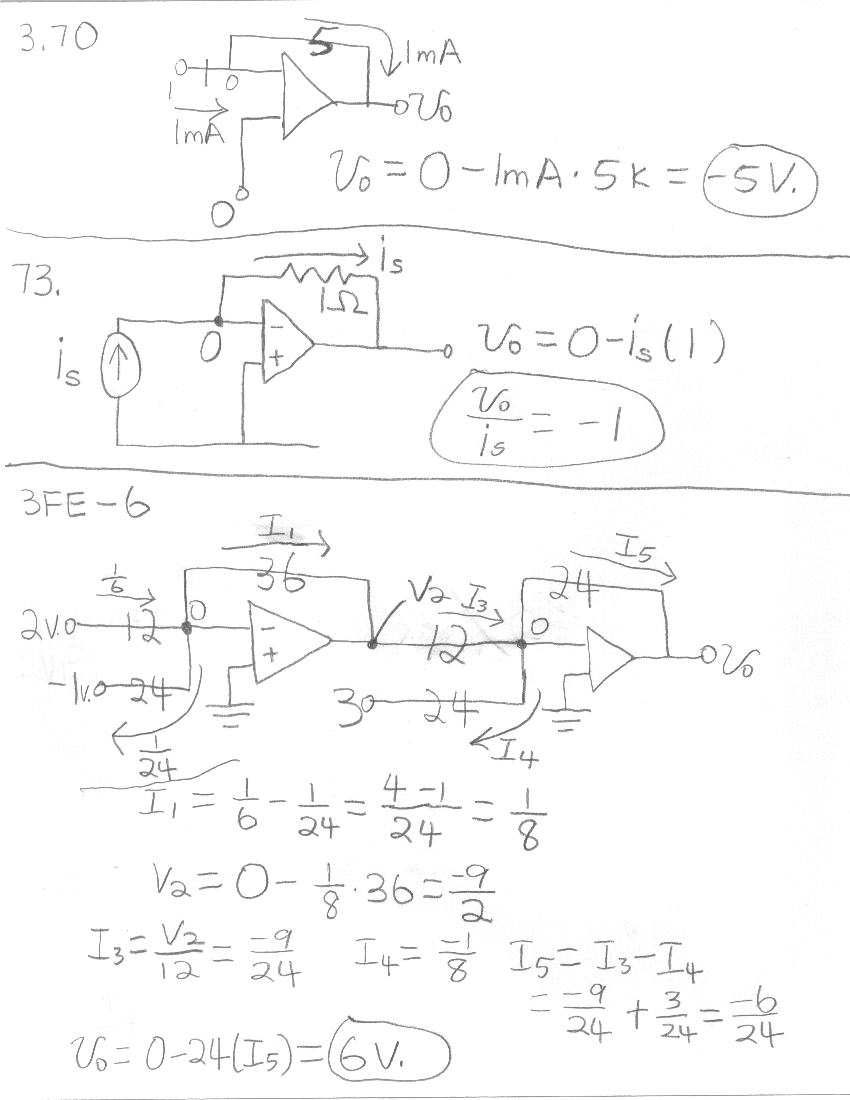 3.70
5
1mA
1 1 0
1mA
vo
0
vo = 0 - 1mA · 5k = -5V.
73.
is
1Ω
0
-
+
is
vo = 0 - is(1)
vo/is = -1
3FE-6
I1
36
I5
24
1/6
V2 I3
2V. 12 0
-
+
12 0
vo
-1V. 24
3 24
1/24
I4
I1 = 1/6 - 1/24 = (4-1)/24 = 1/8
V2 = 0 - 1/8 · 36 = -9/2
I3 = V2/12 = -9/24 I4 = -1/8 I5 = I3 - I4
= -9/24 + 3/24 = -6/24
vo = 0 - 24(I5) = 6V.